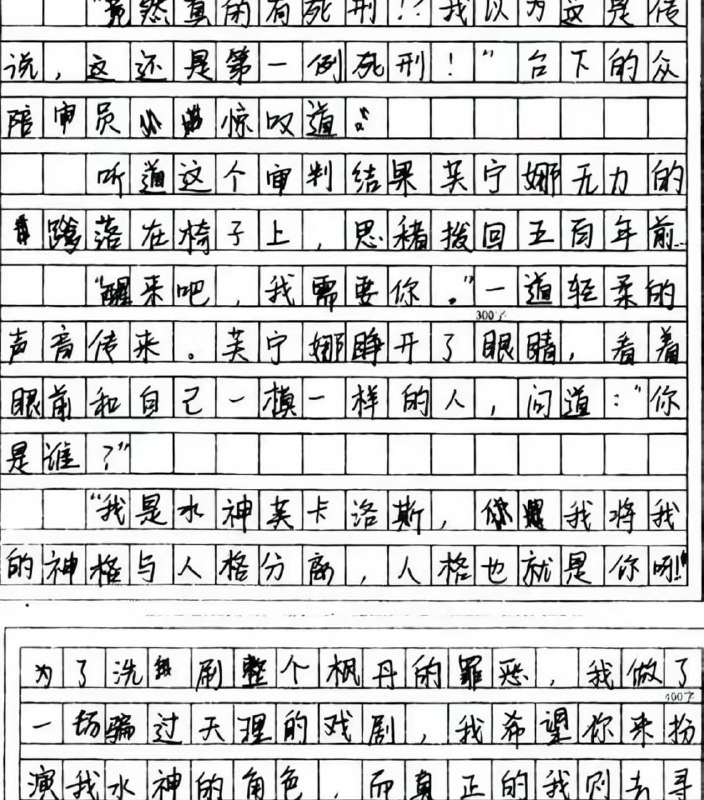 "竟然真的有死刑!?我以为这是传
说，这还是第一例死刑！"台下的众
陪审员惊叹道。
听道这个审判结果芙宁娜无力的
落在椅子上，思绪拨回五百年前
"醒来吧，我需要你。"一道轻柔的
300字
声音传来。芙宁娜睁开了眼睛，看着
眼前和自己一模一样的人，问道："你
是谁？"
"我是水神芙卡洛斯，我将我
的神格与人格分离，人格也就是你呀!"
为了洗刷整个枫丹的罪恶，我做了
400字
一场骗过天理的戏剧，我希望你来扮
演我水神的角色，而真正的我则去寻